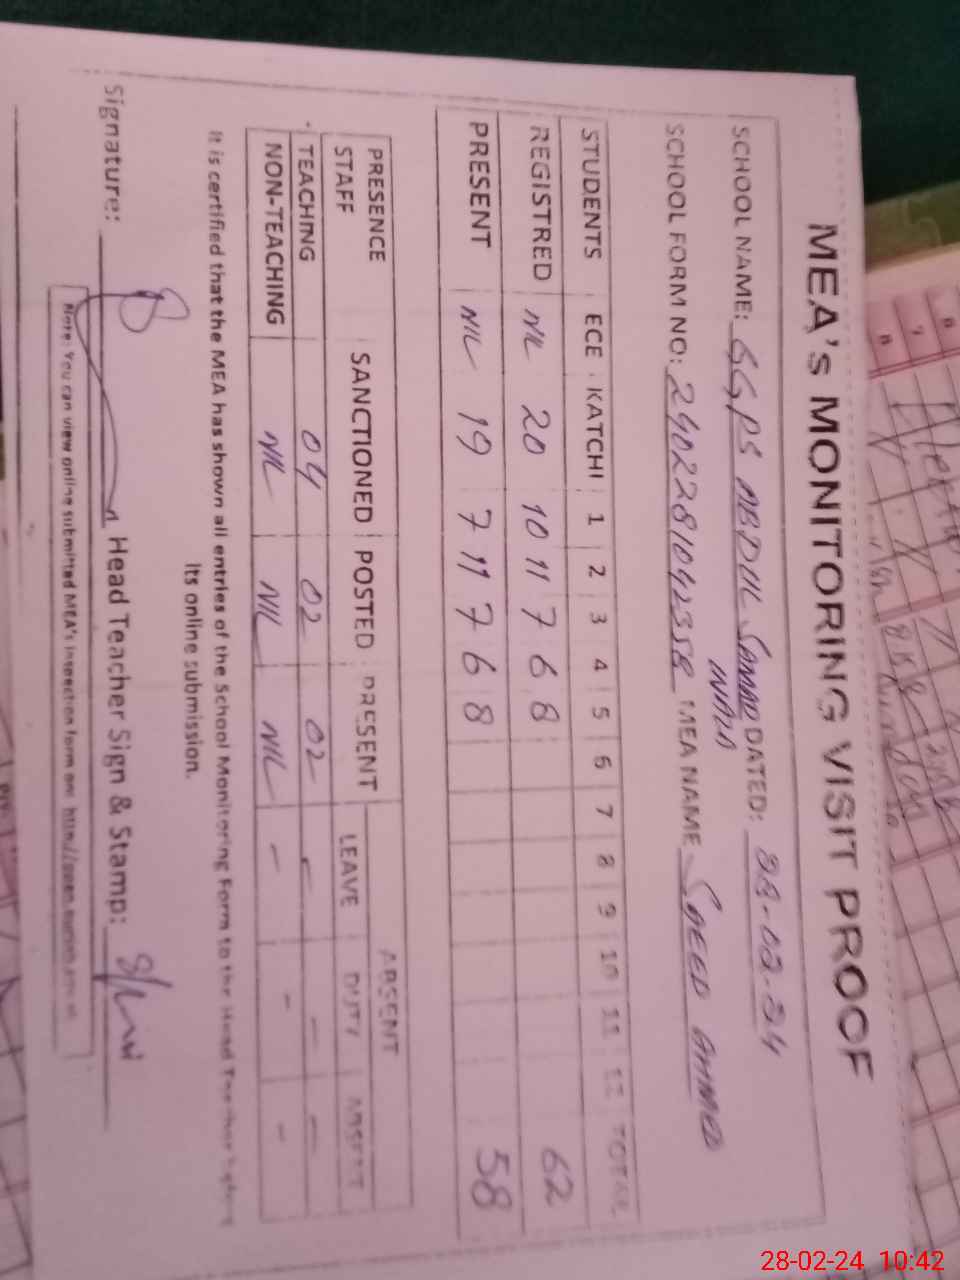 MEA's MONITORING VISIT PROOF
SCHOOL NAME: GGPS ABDUL SAMAD DATED: 28-02-24
WALA
SCHOOL FORM NO: MEA NAME SAEED AHMED
STUDENTS ECE KATCHI 1 2 3 4 5 6 7 8 9 10 11 12 TOTAL
REGISTRED NIL 20 10 11 7 6 8 62
PRESENT NIL 19 7 11 7 6 8 58
PRESENCE SANCTIONED POSTED PRESENT ABSENT
STAFF LEAVE DUTY ABSENT
TEACHING 04 02 02 - - -
NON-TEACHING NIL NIL NIL - - -
It is certified that the MEA has shown all entries of the School Monitoring Form to the Head Teacher before
its online submission.
Signature: Head Teacher Sign & Stamp:
Note: You can view online submitted MEA's inspection form on:
28-02-24 10:42